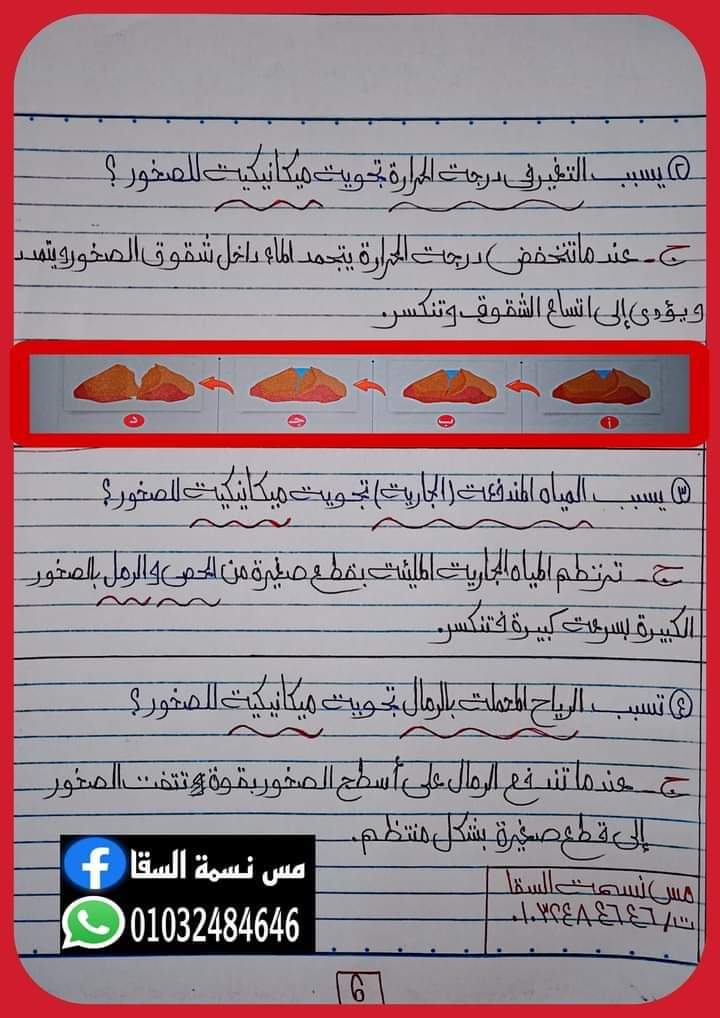 ② يسبب التغير في درجة الحرارة تجوية ميكانيكية للصخور ؟
ج - عندما تنخفض درجة الحرارة يتجمد الماء داخل شقوق الصخور ويتمدد
ويؤدي إلى اتساع الشقوق وتنكسر.
أ ب جـ د
③ يسبب المياه المندفعة (الجارية) تجوية ميكانيكية للصخور ؟
ج - ترتطم المياه الجارية المليئة بقطع صغيرة من الحصى والرمل بالصخور
الكبيرة بسرعة كبيرة فتنكسر.
④ تسبب الرياح المحملة بالرمال تجوية ميكانيكية للصخور ؟
ج - عندما تندفع الرمال على أسطح الصخور بقوة وتتفتت الصخور
إلى قطع صغيرة بشكل منتظم.
مس نسمة السقا
01032484646
مس نسمة السقا
ت/ ٠١٠٣٢٤٨٤٦٤٦
6